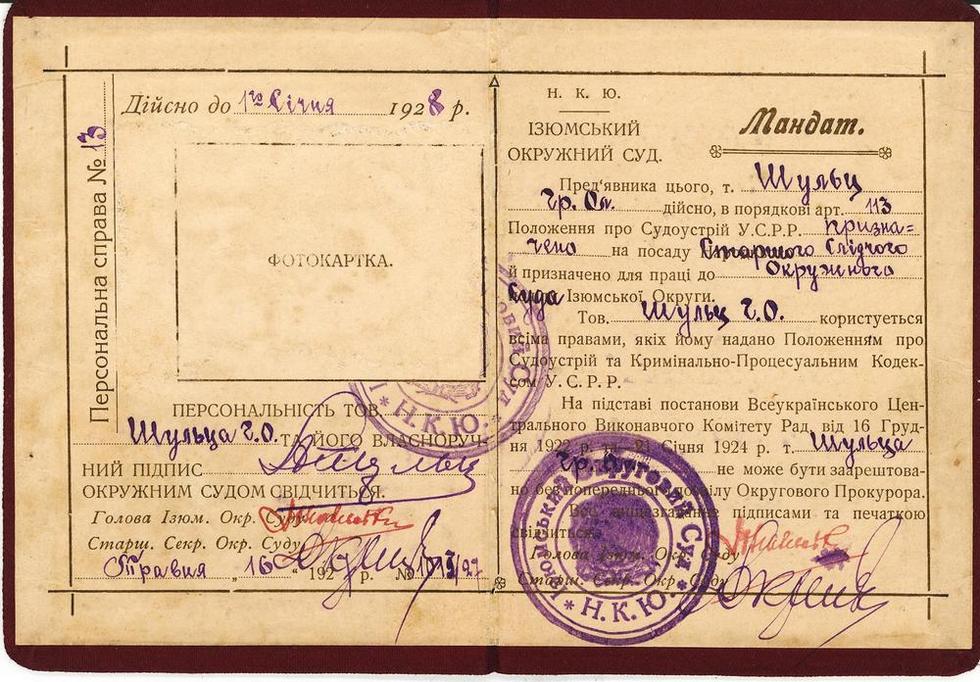 Персональна справа № 13
Дійсно до 1го Січня 1928 р.
ФОТОКАРТКА.
ПЕРСОНАЛЬНІСТЬ ТОВ.
Шульца Г.О. ТА ЙОГО ВЛАСНОРУЧ-
НИЙ ПІДПИС
ОКРУЖНИМ СУДОМ СВІДЧИТЬСЯ.
Голова Ізюм. Окр. Суду
Старш. Секр. Окр. Суду
Травня „16“ 192 р. №
Н. К. Ю.
ІЗЮМСЬКИЙ
ОКРУЖНИЙ СУД.
Мандат.
Пред'явника цього, т. Шульц
Гр. Ол. дійсно, в порядкові арт. 113
Положення про Судоустрій У.С.Р.Р. призна=
чено на посаду Старшого Слідчого
й призначено для праці до Окружного
Суда Ізюмської Округи.
Тов. Шульц Г.О. користується
всіма правами, яких йому надано Положенням про
Судоустрій та Кримінально-Процесуальним Кодек-
сом У. С. Р. Р.
На підставі постанови Всеукраїнського Цен-
трального Виконавчого Комітету Рад, від 16 Груд-
ня 1922 р. та 23 Січня 1924 р. т. Шульца
Гр. не може бути заарештова-
но без попереднього дозвілу Округового Прокурора.
Все вищезказане підписами та печаткою
свідчиться.
Голова Ізюм. Окр. Суду
Старш. Секр. Окр. Суду
* Н.К.Ю. *
* Н.К.Ю. *